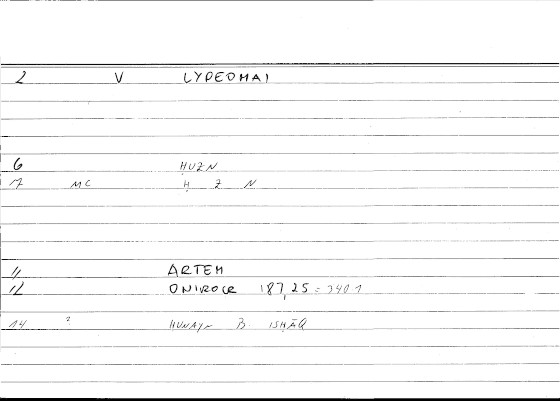 2 V LYPEOMAI
6 ḤUZN
7 MC Ḥ Z N
11 ARTEM
12 ONIROCR 187,25 = 340 1
14 ? ḤUNAYN B. ISḤĀQ